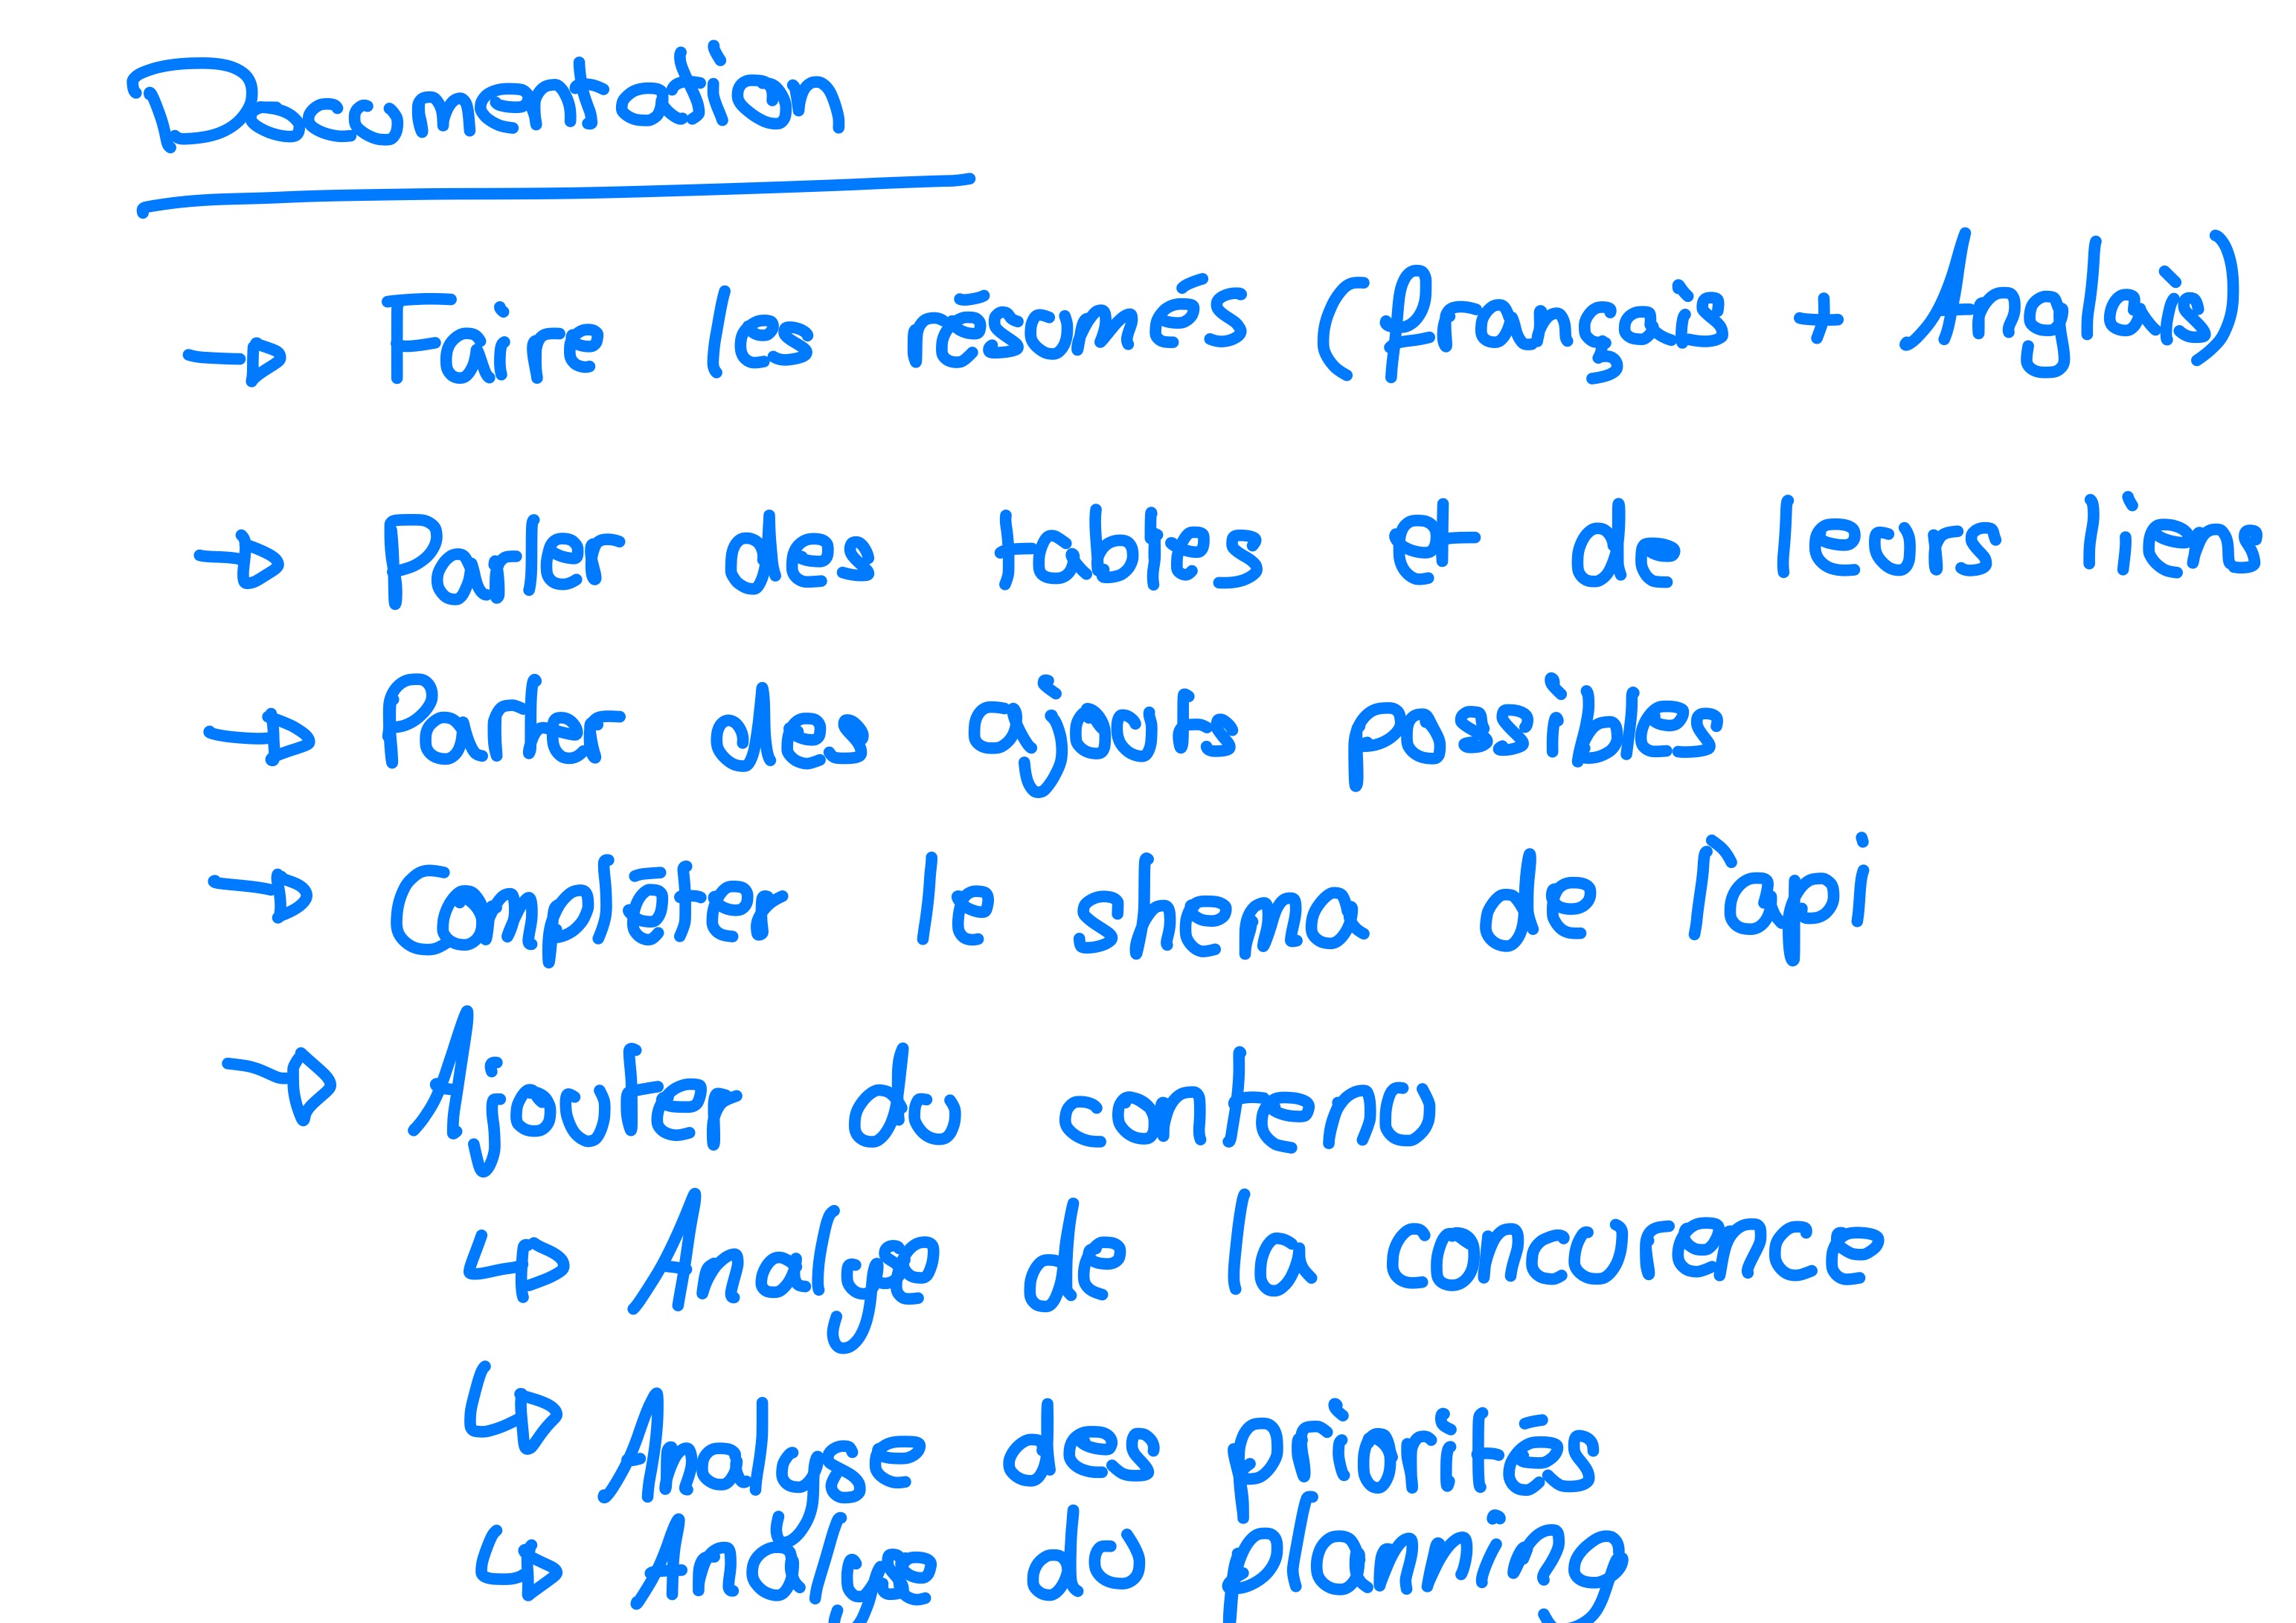 Documentation
→ Faire les résumés (français + Anglais)
→ Parler des tables et de leurs liens
→ Parler des ajouts possibles
→ Compléter le shema de l'api
→ Ajouter du contenu
↳ Analyse de la concurence
↳ Analyse des priorités
↳ Analyse du planning